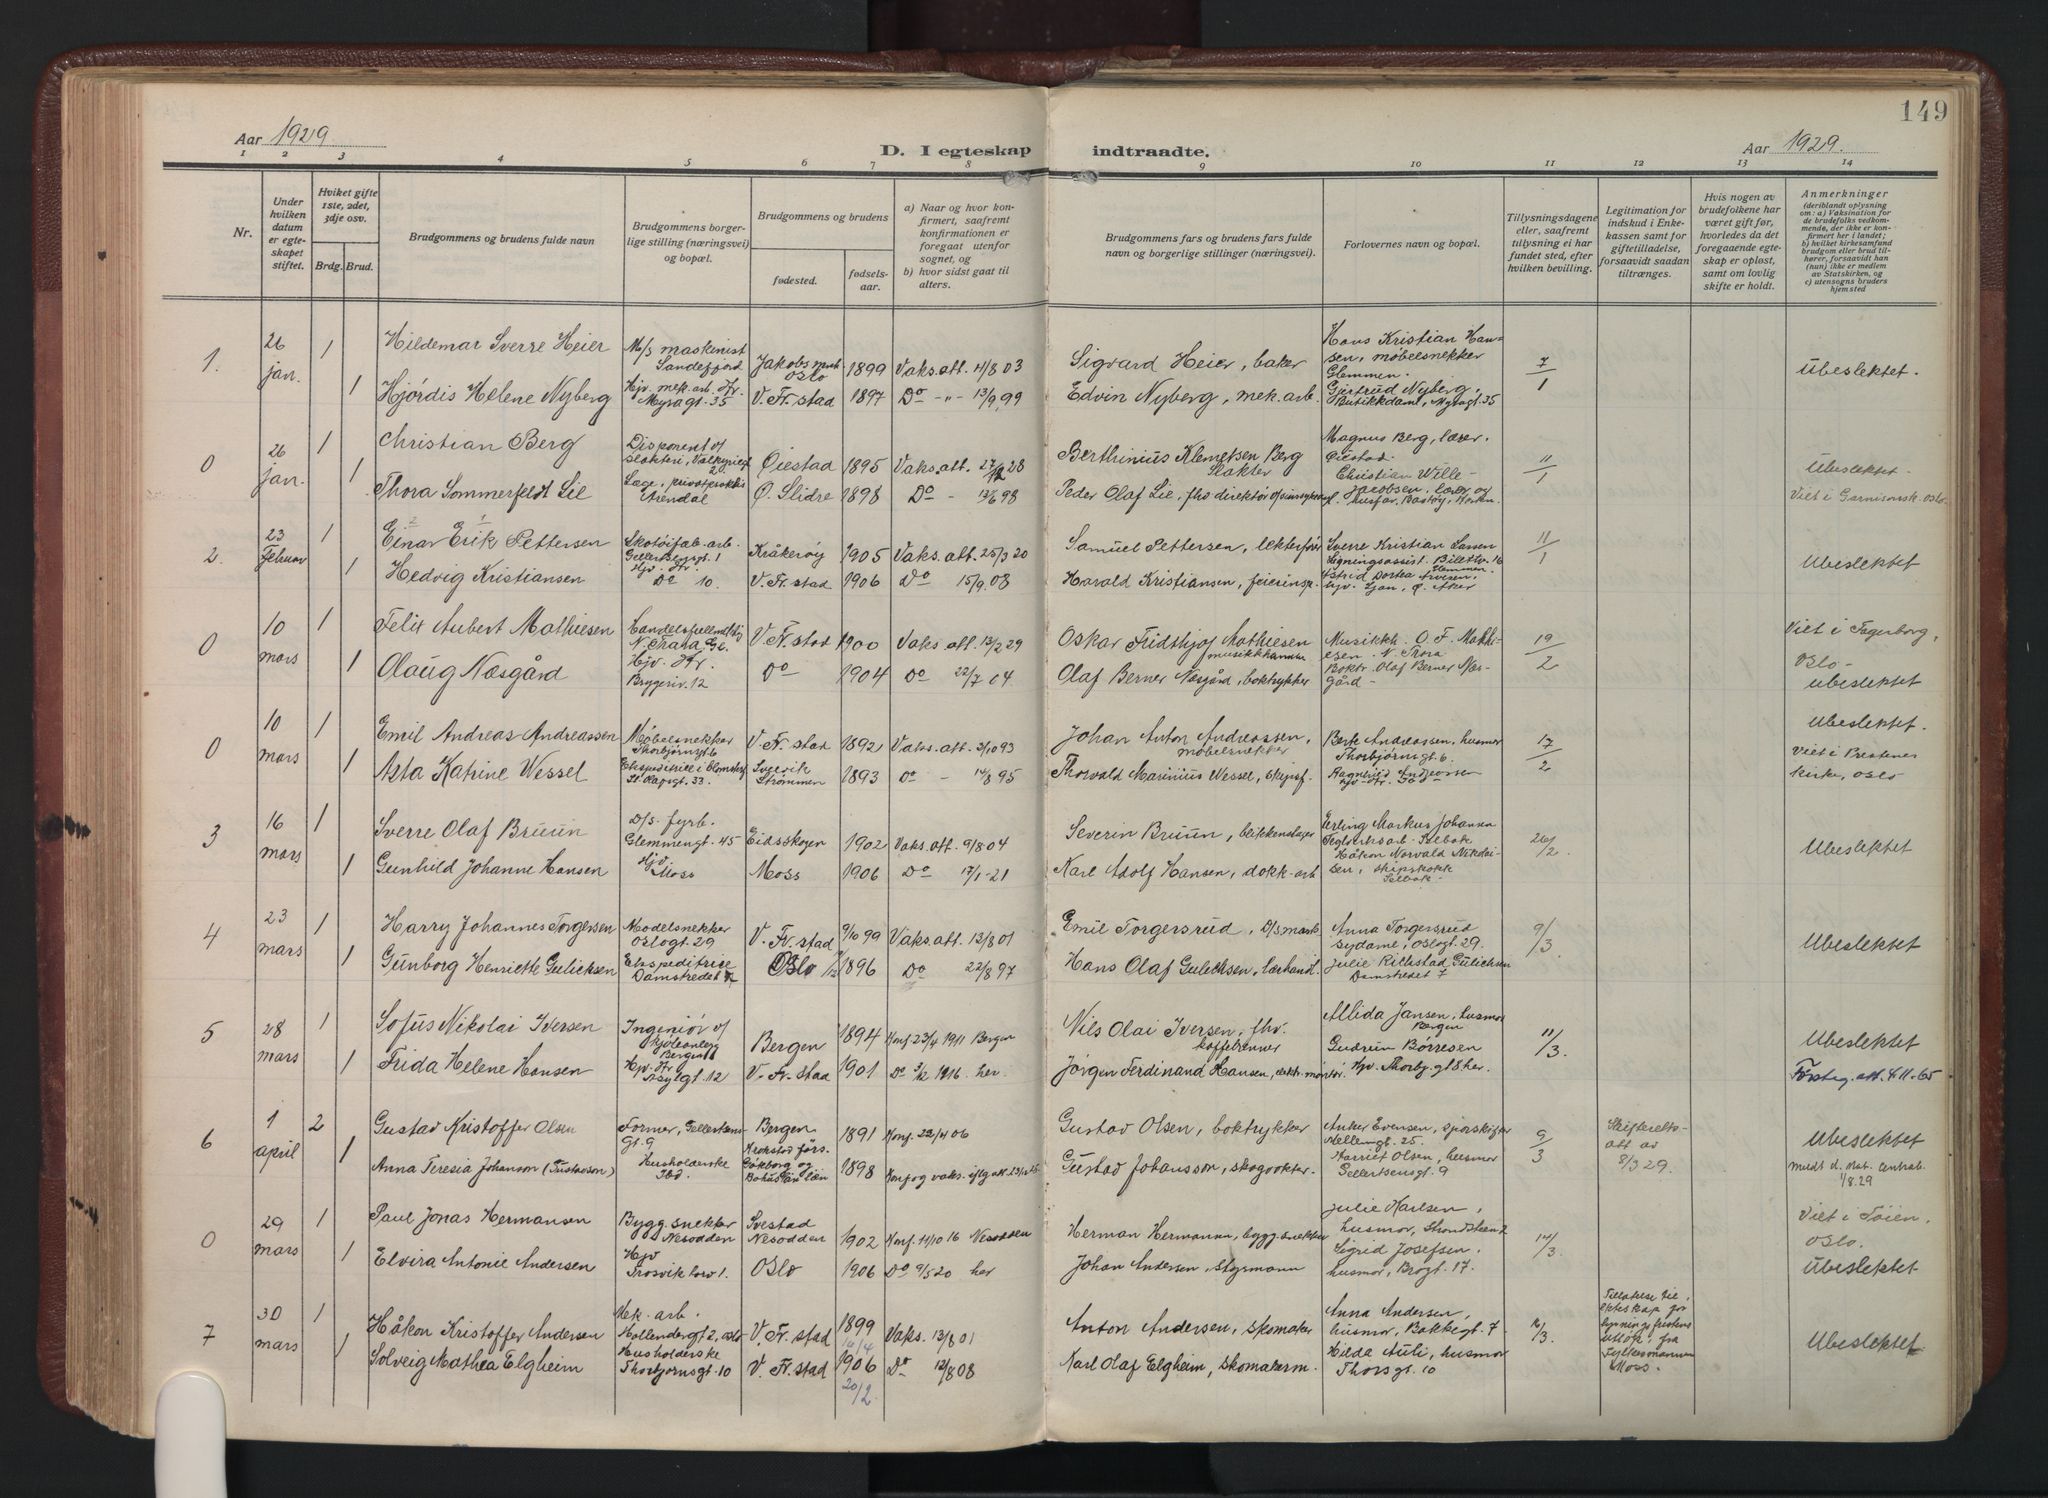 149
Aar 1929
D. I egteskap indtraadte.
Aar 1929.
1 2 3 4 5 6 7 8 9 10 11 12 13 14
Nr.
Under hvilken datum er egteskapet stiftet.
Hviket gifte 1ste, 2det, 3dje osv.
Brdg. Brud.
Brudgommens og brudens fulde navn
Brudgommens borgerlige stilling (næringsvei) og bopæl.
Brudgommens og brudens
fødested.
fødselsaar.
a) Naar og hvor konfirmert, saafremt konfirmationen er foregaat utenfor sognet, og
b) hvor sidst gaat til alters.
Brudgommens fars og brudens fars fulde navn og borgerlige stillinger (næringsvei).
Forlovernes navn og bopæl.
Tillysningsdagene eller, saafremt tillysning ei har fundet sted, efter hvilken bevilling.
Legitimation for indskud i Enkekassen samt for giftetilladelse, forsaavidt saadan tiltrænges.
Hvis nogen av brudefolkene har været gift før, hvorledes da det foregaaende egteskap er opløst, samt om lovlig skifte er holdt.
Anmerkninger (deriblandt oplysning om: a) Vaksination for de brudefolks vedkommende, der ikke er konfirmert her i landet; b) hvilket kirkesamfund brudgom eller brud tilhører, forsaavidt han (hun) ikke er medlem av Statskirken, og c) utensogns bruders hjemsted
1. 26 jan. 1 Hildemar Sverre Heier M/S maskinist Sandefjord Jakobs Oslo 1899 Vaks.att. 11/8 03 Sigvard Heier, baker Hans Kristian Hansen, møbelsnekker Glemmen. 7/1 Ubeslektet.
1 Hjørdis Helene Nyberg Hjv. mek.arb. Fr. Myragt. 35 V. Fr.stad 1897 Do -"- 13/9 99 Edvin Nyberg, mek.arb. Gjertrud Nyberg, Butikkdame, Myragt. 35
0 26 jan. 1 Christian Berg Disponent v/ slakteri, Øiestad 1895 Vaks.att. 28 Berthinius Klemetsen Berg Slakter Magnus Berg, lærer, Øiestad. 11/1 Ubeslektet.
1 Thora Sommerfeldt Lie Læge, privatpraksis Arendal Ø. Slidre 1898 Do - 12/6 98 Peder Olaf Lie, fhv direktør Christian Wille Jacobsen, lærer og Bastøy, Horten. Viet i Garnisonsk. Oslo
2. 23 Februar 1 Einar Erik Pettersen Skotøifab.arb. Gellertsensgt. 1 Kråkerøy 1905 Vaks.att. 25/3 20 Samuel Pettersen, lekterfører Sverre Kristian Larsen Ligningsassist. Glemmen 11/1 Ubeslektet
1 Hedvig Kristiansen Hjv. Fr. Do 10. V. Fr.stad 1906 Do 15/9. 08 Harald Kristiansen, feierinsp. Astrid Dortea hjv. Ljan, Ø. Aker
0 10 mars 1 Felix Aubert Mathiesen V. Fr.stad 1900 Vaks.att. 13/2 29 Oskar Fridthjof Mathiesen musikkhandler Musikkh. O. F. Mathiesen N. Thora 19/2 Viet i Fagerborg, Oslo-
1 Olaug Næsgård Hjv. Fr. Bryggeriv. 12 Do 1904 Do 22/7 04. Olaf Berner Næsgård, boktrykker Boktr. Olaf Berner Næsgård - Ubeslektet
0 10 mars 1 Emil Andreas Andreassen Møbelsnekker Thorbjørnsgt 6 V. Fr.stad 1892 Vaks.att. 3/10 93 Johan Anton Andreassen, møbelsnekker Berte Andreassen, husmor Thorbjørnsgt. 6. 17/2 Ubeslektet.
1 Asta Katrine Wessel Ekspeditrise i blomsterf. St. Olafsgt. 33. Svelvik Strømmen 1893 Do - 14/8 95 Thorvald Marinius Wessel, skipsf. Ragnhild Andreassen Viet i Prestenes kirke, Oslo
3 16 mars 1 Sverre Olaf Bruun D/s. fyrb. Glemmengt. 45 Eidsskogen 1902 Vaks.att. 9/8 04 Severin Bruun, blikkenslager Erling Markus Johansen Teglverksarb. Selbak 26/2. Ubeslektet
1 Gunhild Johanne Hansen Hjv Moss Moss 1906 Do 17/1-21 Karl Adolf Hansen, dokk-arb Håkon Norvald Nikolaisen, skipskokk Selbak -
4 23 mars 1 Harry Johannes Torgersen Modelsnekker Oslogt. 29 V. Fr.stad 9/10 99 Vaks.att. 13/8 01 Emil Torgersrud, D/s mask. Anna Torgersrud sydame, Oslogt. 29. 9/3 Ubeslektet
1 Gunborg Henriette Gulicksen Ekspeditrice Damstredet 7 Oslo 1896 Do 22/8 97 Hans Olaf Gulichsen, lærhandl. Julie Rillestad Gulichsen Damstredet 7
5 28 mars 1 Sofus Nikolai Iversen Ingeniør v/ kjøleanlegg Bergen Bergen 1894 Konf. 23/4 1911 Bergen Nils Olai Iversen, fhv. kaffebrenner Alida Jansen, husmor Bergen 11/3. Ubeslektet
1 Frida Helene Hansen Hjv. Fr. Asylgt. 12 V. Fr. stad 1901 Do 3/12 1916 her. Jörgen Ferdinand Hansen, elektr.montør. Gudrun Børresen Hjv. Thorbj.gt 8 her. Førsteg.att. 4.11.65
6 1 april 2 Gustav Kristoffer Olsen Former, Gellertsensgt. 9 Bergen 1891 Konf. 22/4 06 Gustav Olsen, boktrykker Anker Evensen, sporskifter Mellemgt. 25. 9/3 Skifteretts-att av 8/3 29. Ubeslektet
1 Anna Teresia Johanson (Gustavson) Husholderske Ibd. Krokstad förs. Göteborg og Bohus län 1898 Konf og vaks. iflg att. Gustav Johansson, skogvokter. Harriet Olsen, husmor Gellertsensgt. 9 meldt d. stat. Centralb. 1/8.29
0 29 mars 1 Paul Jonas Hermansen Bygg.snekker Nesodden Svestad Nesodden 1902 Konf. 11/10 16 Nesodden Herman Hermansen, bygg.snekker Julie Karlsen, husmor, 14/3. Viet i Tøien, Oslo.
1 Elvira Antonie Andersen Hjv Trosvik torv 1. Oslo 1906 Do 9/5 20 her Johan Andersen, styrmann Sigrid Josefsen, husmor, Brogt. 17. Ubeslektet
7 30 mars 1 Håkon Kristoffer Andersen Mek. arb. Møllendergt 2, Oslo V. Fr. stad 1899 14/4 Vaks. 13/8 01 Anton Andersen, skomaker Anna Andersen, husmor, Bakkegt. 7 16/3. Tillatelse til ekteskap før lysningsfristens utløp, fra Fylkesmannen Moss. Ubeslektet
1 Solveig Mathea Elgheim Husholderske Thorbjørnsgt. 10 V. Fr. stad 1906 20/2. Do 12/8 08 Karl Olaf Elgheim, skomakerm. Hilda Auli, husmor Thorsgt. 10